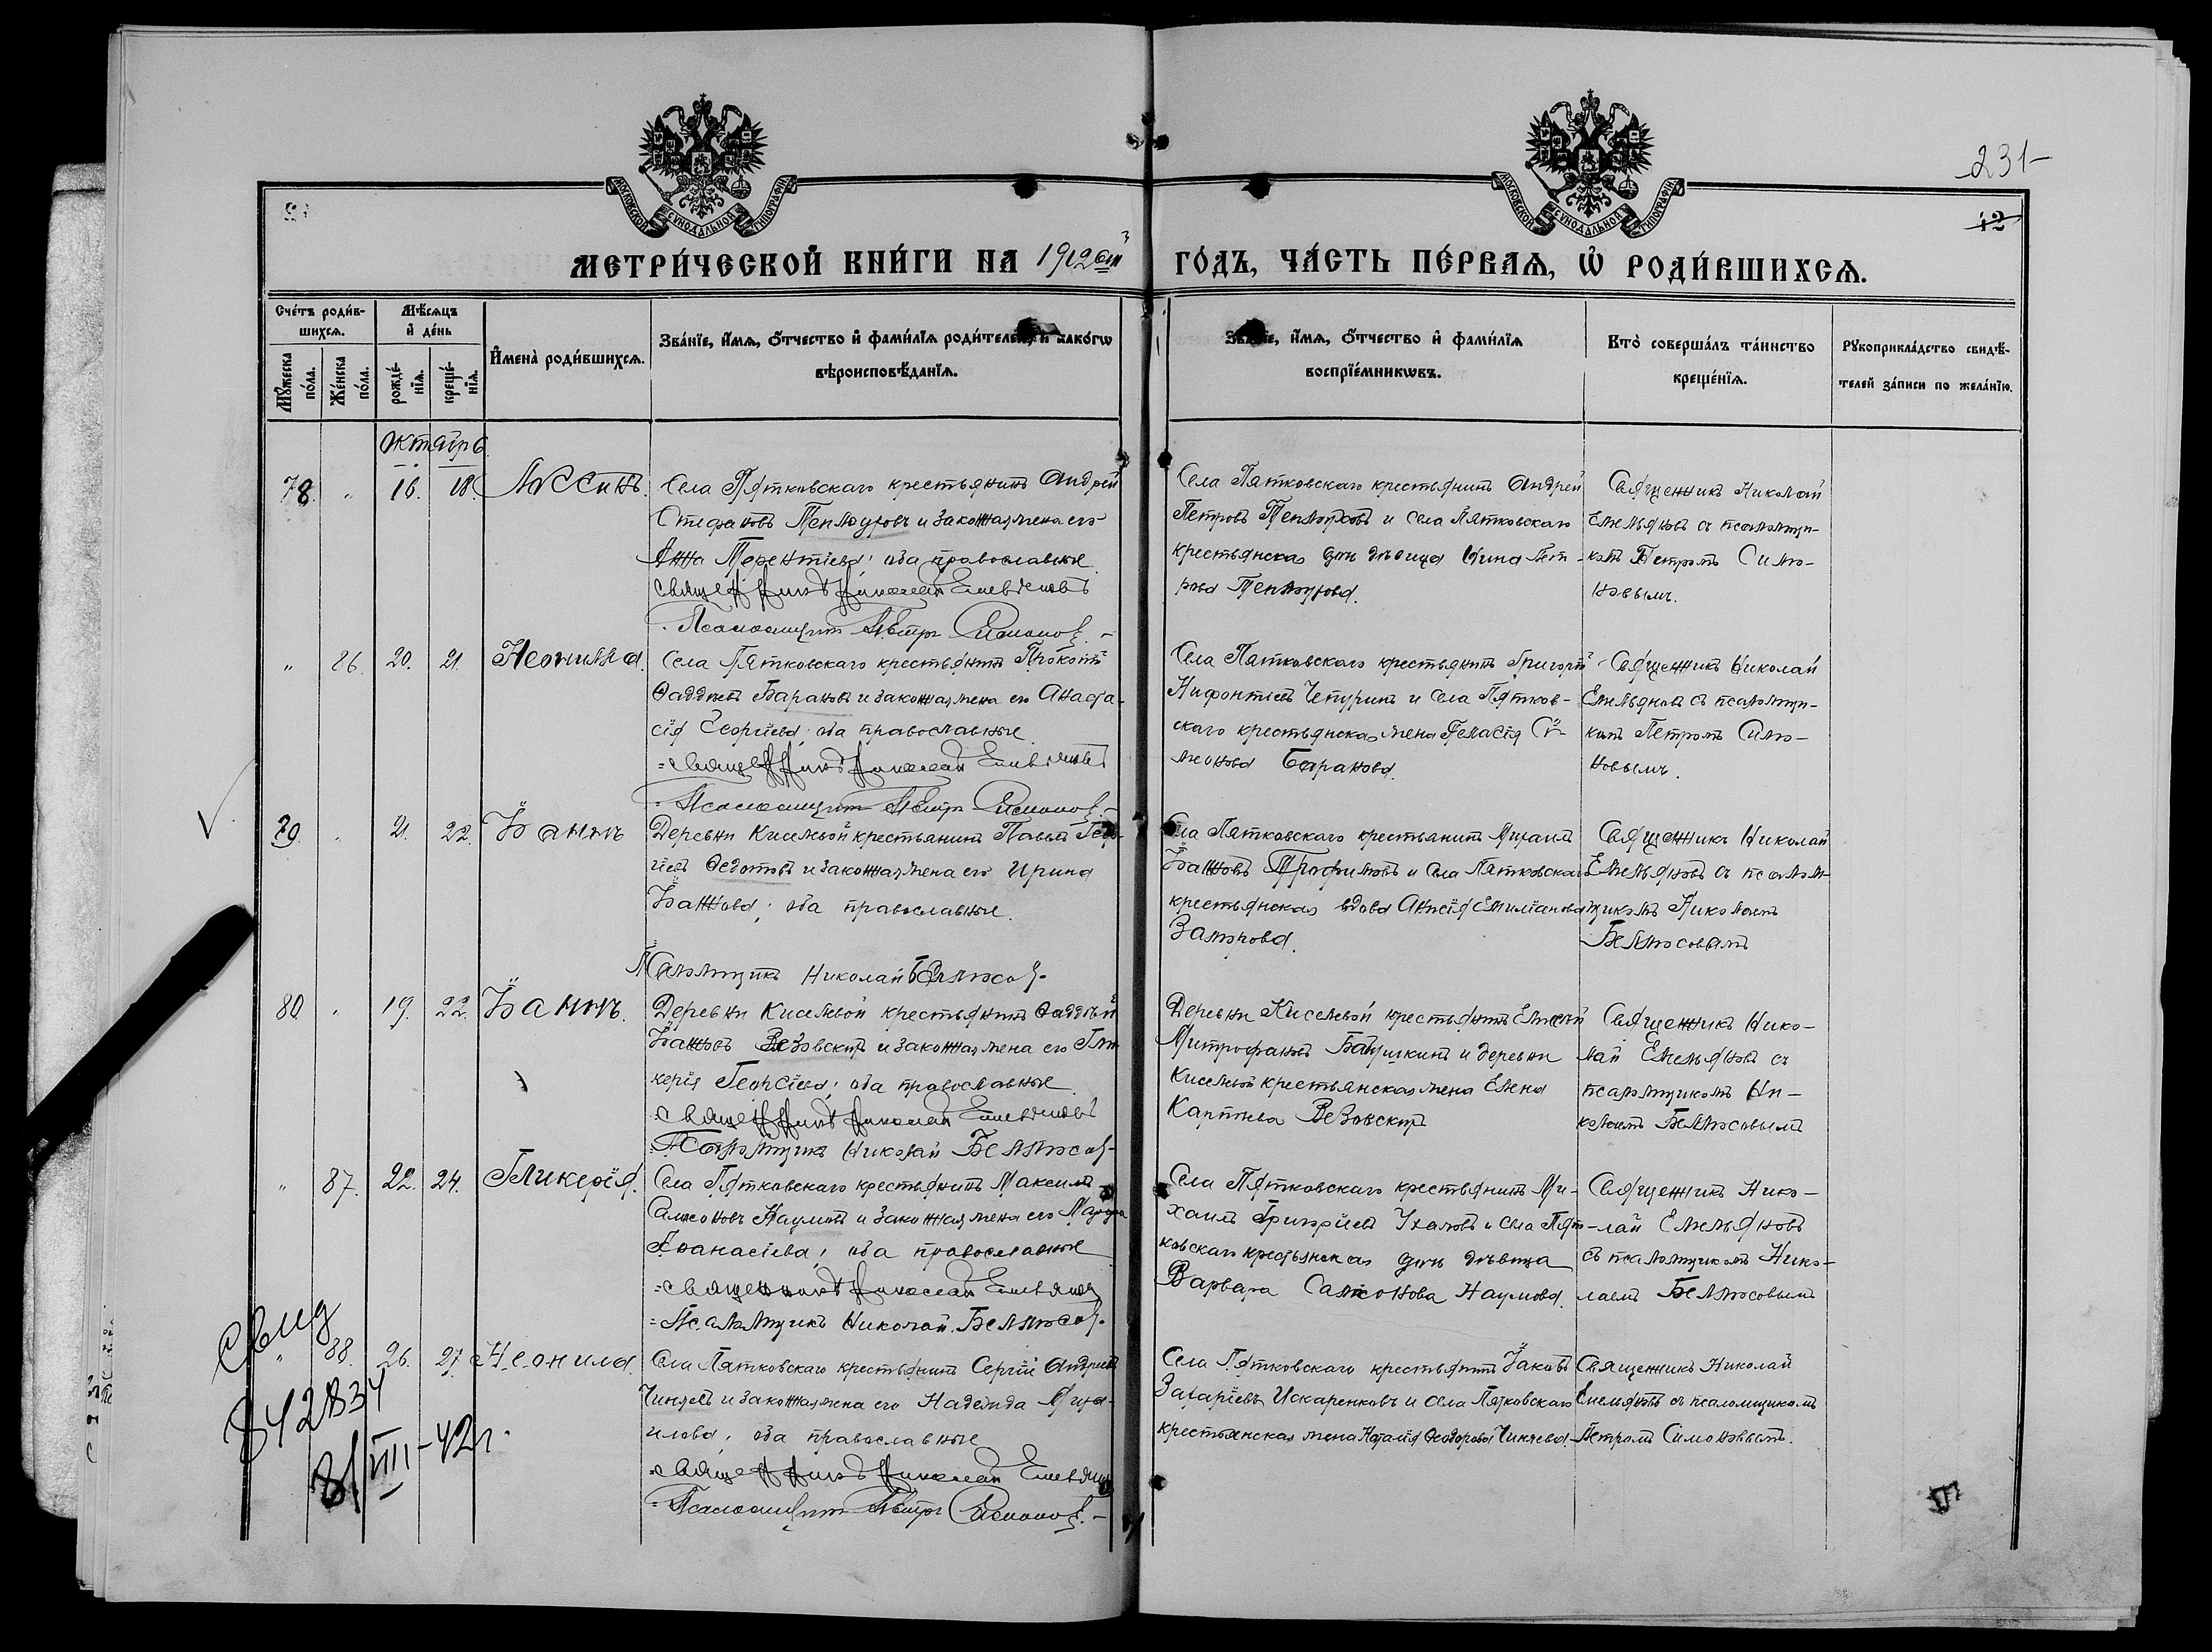 231-
12
МОСКОВСКОЙ СѴНОДАЛЬНОЙ ТИПОГРАФІИ
МОСКОВСКОЙ СѴНОДАЛЬНОЙ ТИПОГРАФІИ
МЕТРИ́ЧЕСКОЙ КНИ́ГИ НА 1912 ГО́ДЪ, ЧА́СТЬ ПЕ́РВАЯ, Ѡ РОДИ́ВШИХСЯ.
Сче́тъ роди́в-
шихсѧ.
Мꙋ́жеска по́ла.
Же́нска по́ла.
Мѣ́сѧцъ
и҆ де́нь
рожде́-
нїѧ.
креще́-
нїѧ.
И҆мена̀ роди́вшихсѧ.
Зва́нїе, и҆́мѧ, ѻ҆́тчество и҆ фами́лїѧ роди́телей, и҆ како́гѡ
вѣроисповѣ́данїѧ.
Зва́нїе, и҆́мѧ, ѻ҆́тчество и҆ фами́лїѧ
воспрїе́мникѡвъ.
Кто̀ соверша́лъ та́инство
креще́нїѧ.
Рꙋкоприкла́дство свидѣ́-
телей за́писи по жела́нїю.
Октябрь
78. " 16. 18.
Села Пятковскаго крестьянинъ Андрей
Стефановъ и законная жена его
Анна Терентіева; оба православные
Священникъ Николай Емельяновъ
Псаломщикъ Петръ Симонов.
Села Пятковскаго крестьянинъ Андрей
Петровъ и села Пятковскаго
крестьянская дочь дѣвица Пет-
рова
Священникъ Николай
Емельяновъ съ псаломщи-
комъ Петромъ Симо-
новымъ.
" 86. 20. 21. Неонилла.
Села Пятковскаго крестьянинъ Прокопій
Ѳаддеевъ Барановъ и законная жена его Анаста-
сія Георгіева; оба православные
Священникъ Николай Емельяновъ
Псаломщикъ Петръ Симонов.
Села Пятковскаго крестьянинъ Григорій
Нифонтіевъ Чепуринъ и села Пятков-
скаго крестьянская жена Геласія Си-
меонова Баранова.
Священникъ Николай
Емельяновъ съ псаломщи-
комъ Петромъ Симо-
новымъ.
79. " 21. 22. Іоаннъ
Деревни Киселевой крестьянинъ Павелъ Геор-
гіевъ Ѳедотовъ и законная жена его Ирина
Іоаннова; оба православные.
Псаломщикъ Николай Бѣлоусов.
Села Пятковскаго крестьянинъ Михаилъ
Іоанновъ Трофимовъ и села Пятковскаго
крестьянская вдова Анисія Емиліанова
Священникъ Николай
Емельяновъ съ псалом-
щикомъ Николаемъ
Бѣлоусовымъ
80 " 19. 22. Іоаннъ.
Деревни Киселевой крестьянинъ Ѳаддей
Іоанновъ и законная жена его Гли-
керія Георгіева; оба православные
Священникъ Николай Емельяновъ
Псаломщикъ Николай Бѣлоусов.
Деревни Киселевой крестьянинъ
Митрофановъ и деревни
Киселевой крестьянская жена Елена
Карпова
Священникъ Нико-
лай Емельяновъ съ
псаломщикомъ Ни-
колаемъ Бѣлоусовымъ
" 87. 22. 24. Гликерія.
Села Пятковскаго крестьянинъ Максимъ
Самсоновъ Наумовъ и законная жена его
Аѳанасіева; оба православные
Священникъ Николай Емельянов
Псаломщикъ Николай Бѣлоусов.
Села Пятковскаго крестьянинъ Ми-
хаилъ Григоріевъ и села Пят-
ковскаго крестьянская дочь дѣвица
Варвара Самсонова Наумова.
Священникъ Нико-
лай Емельяновъ
съ псаломщикомъ Нико-
лаемъ Бѣлоусовымъ
" 88. 26. 27. Неонила
Села Пятковскаго крестьянинъ Сергій Андреевъ
и законная жена его Надежда Миха-
илова; оба православные
Священникъ Николай Емельянов
Псаломщикъ Петръ Симонов.
Села Пятковскаго крестьянинъ Іаковъ
Захаріевъ Искаренковъ и села Пятковскаго
крестьянская жена Наталія Ѳеодорова
Священникъ Николай
Емельяновъ съ псаломщикомъ
Петромъ Симоновымъ.
Свид
842834
8/VIII-42г.